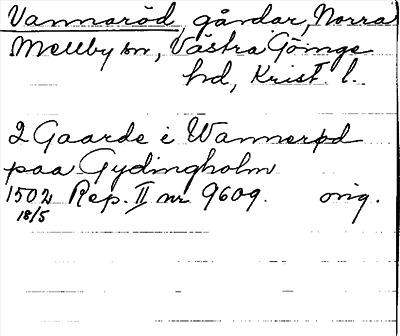 Vannaröd gårdar, Norra
Mellby sn, Västra Göinge
hd, Krist. l.
2 Gaarde i Wannerød
paa Gydingholm
1502 Rep. II nr 9609. orig.
18/5